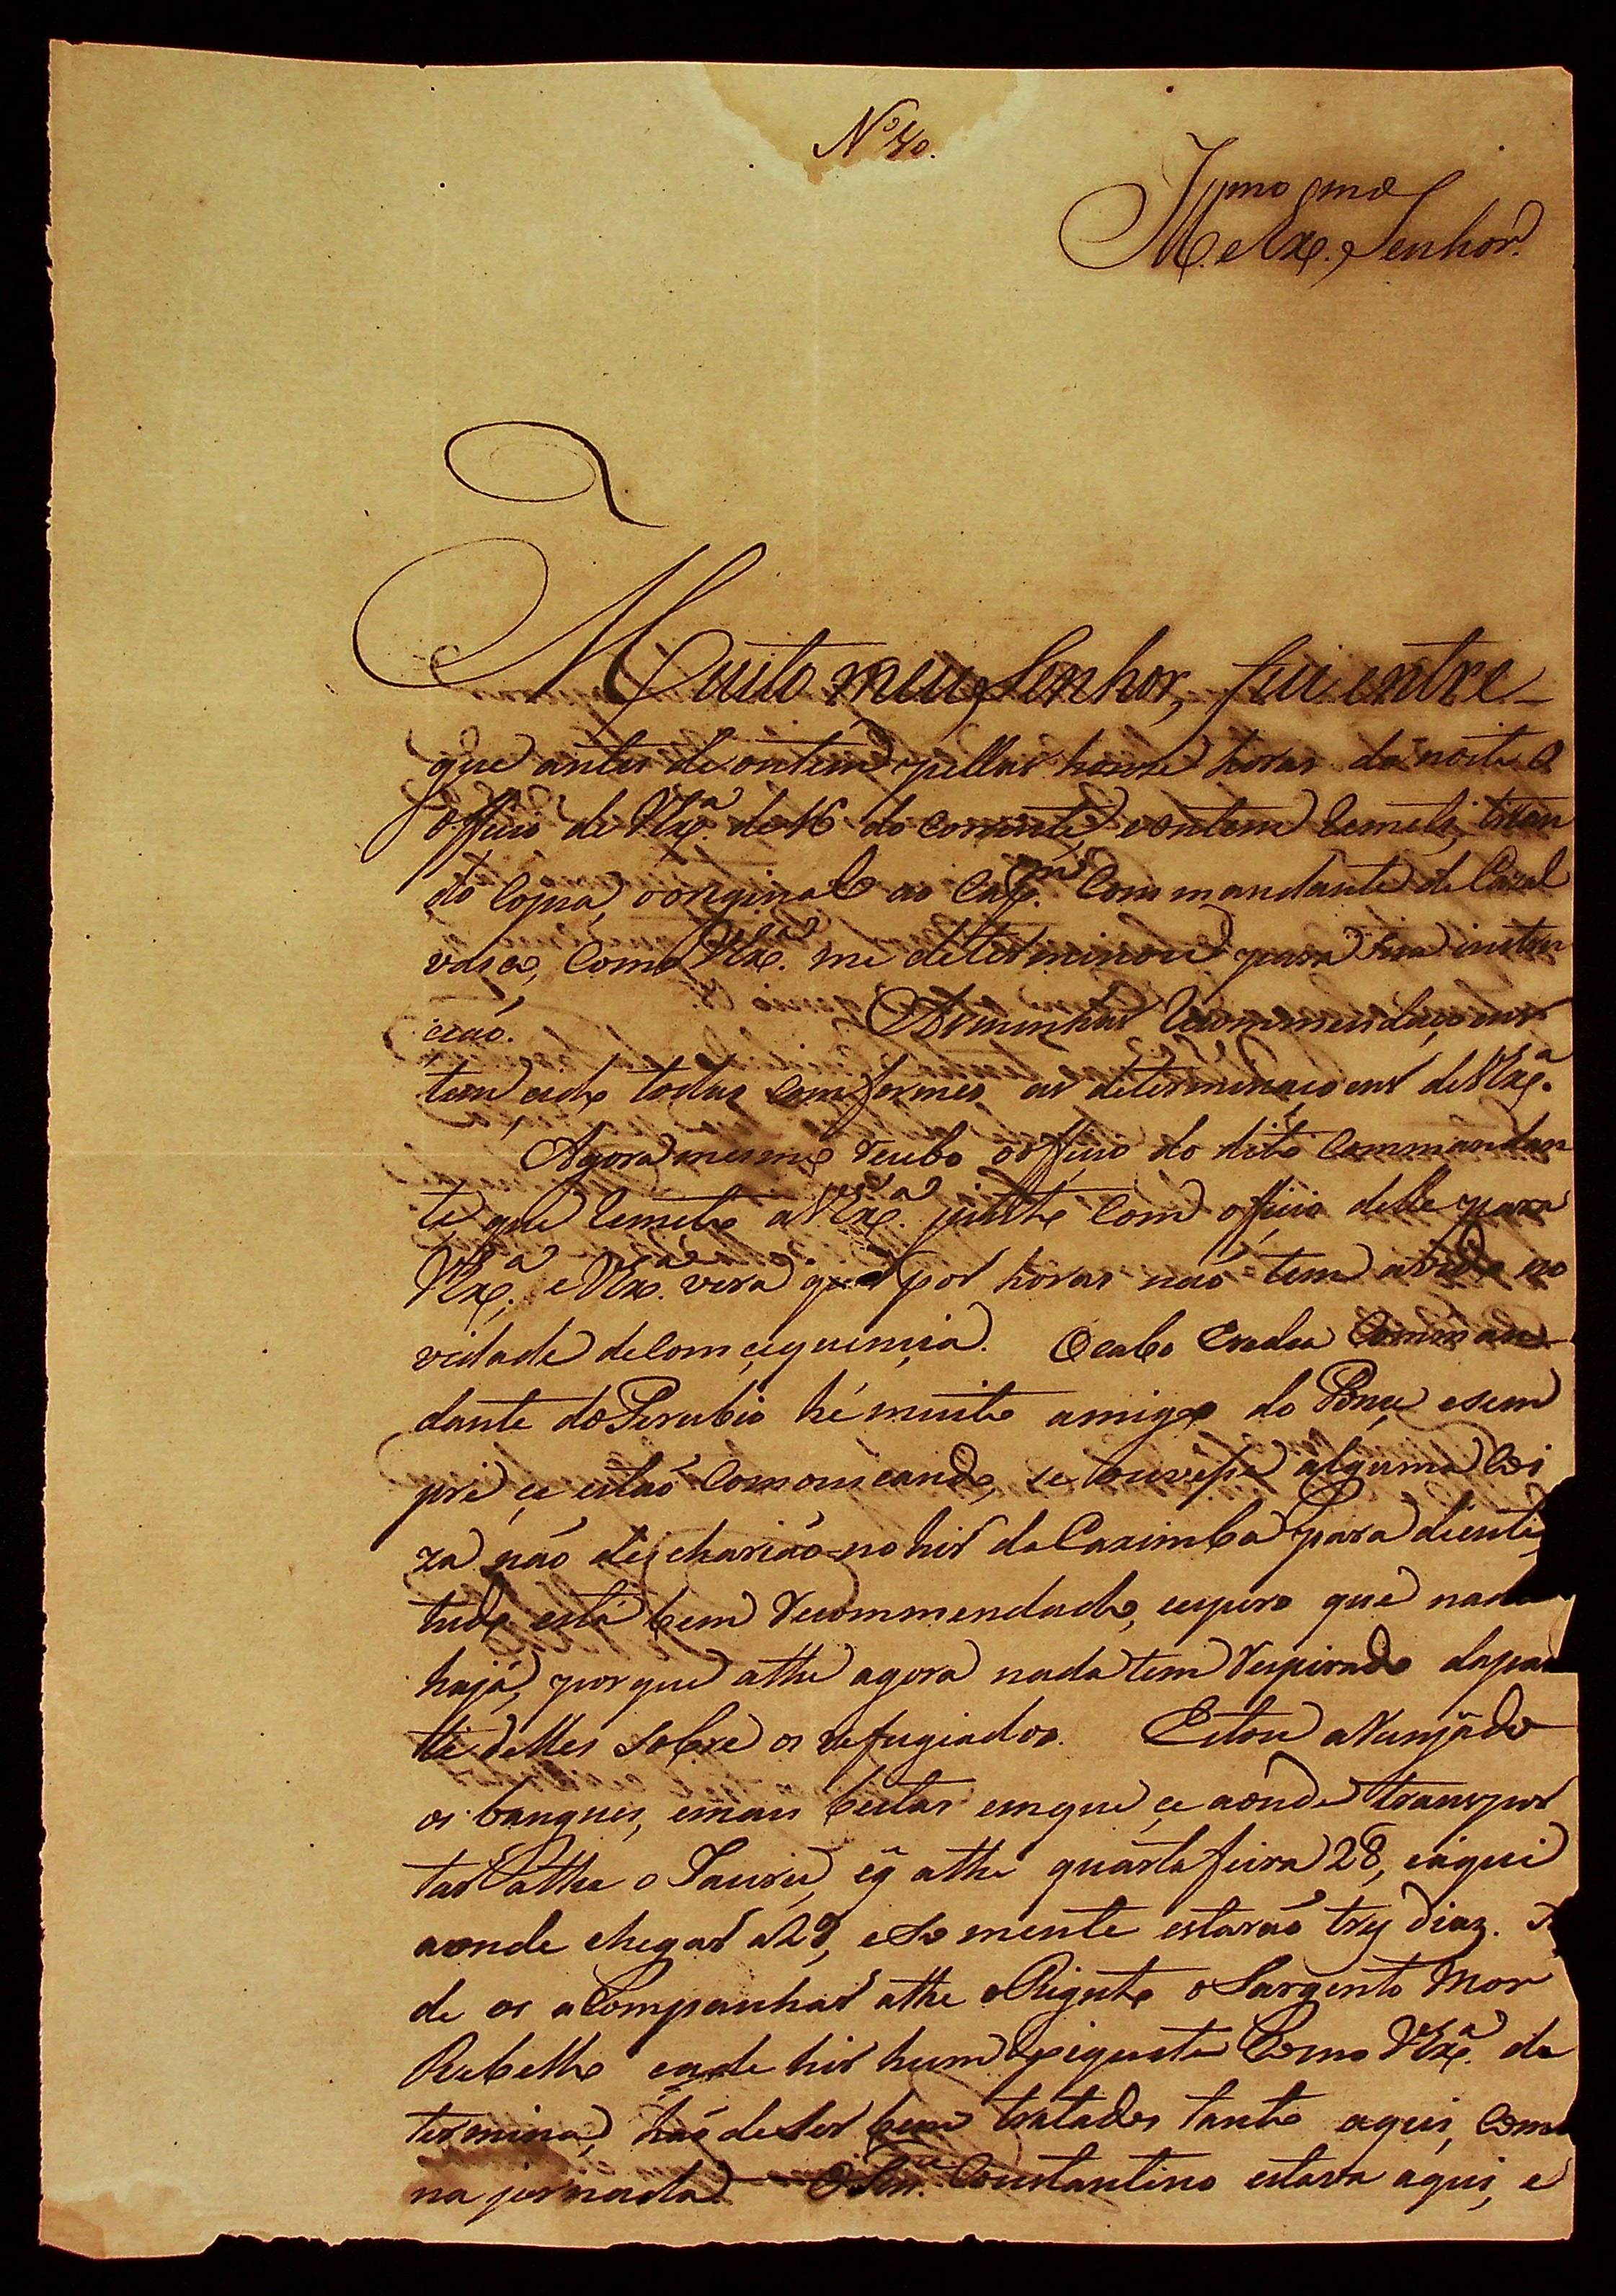 Nº 40.
Illmo e Exmo Senhor.
Muito meu Senhor, fui entre-
gue antes de ontem pellas honze horas da noite o
officio de VExª de 16 do corrente, eontem Remeti, tiran
do Copia, o original ao Capm Commandante de Cazal
vasco, Como VExª me determinou para sua instru
ccaó.   As minhas Recommendaçoens
tem cido todas comformes as determinaçoens de VExª
Agora mesmo Recebo o officio do dito Commandan
te que Remeto a VExª junto Com o officio delle para
VExª, e VExª vera que por horas naó tem avido no
vidade de Comcequencia.   O Cabo Comman
dante do Perubio hé muito amigo do e sem
pre ce estaó Comonicando, se ouvese alguma Coi
za não deicharião-no hir da Caximba para diente,
tudo está bem Recommendado, eespero que nada
haja, porque athe agora nada tem Respirado da par
te delles sobre os refugiados.   Estou aRunjãdo
os bangues, emais bestas emque ce aonde transpor
tar athe o Jauru, eq̃ athe quarta feira 28, eaqui
aonde chegar a 29, e Somente estaraó trez diaz.
de os aCompanhar athe o Registo o Sargento Mor
Rebello eade hir hum piquete Como VExª de
termina, haó deser bem tratados tanto aqui, Como
na jornada.   O Constantino estava aqui, e